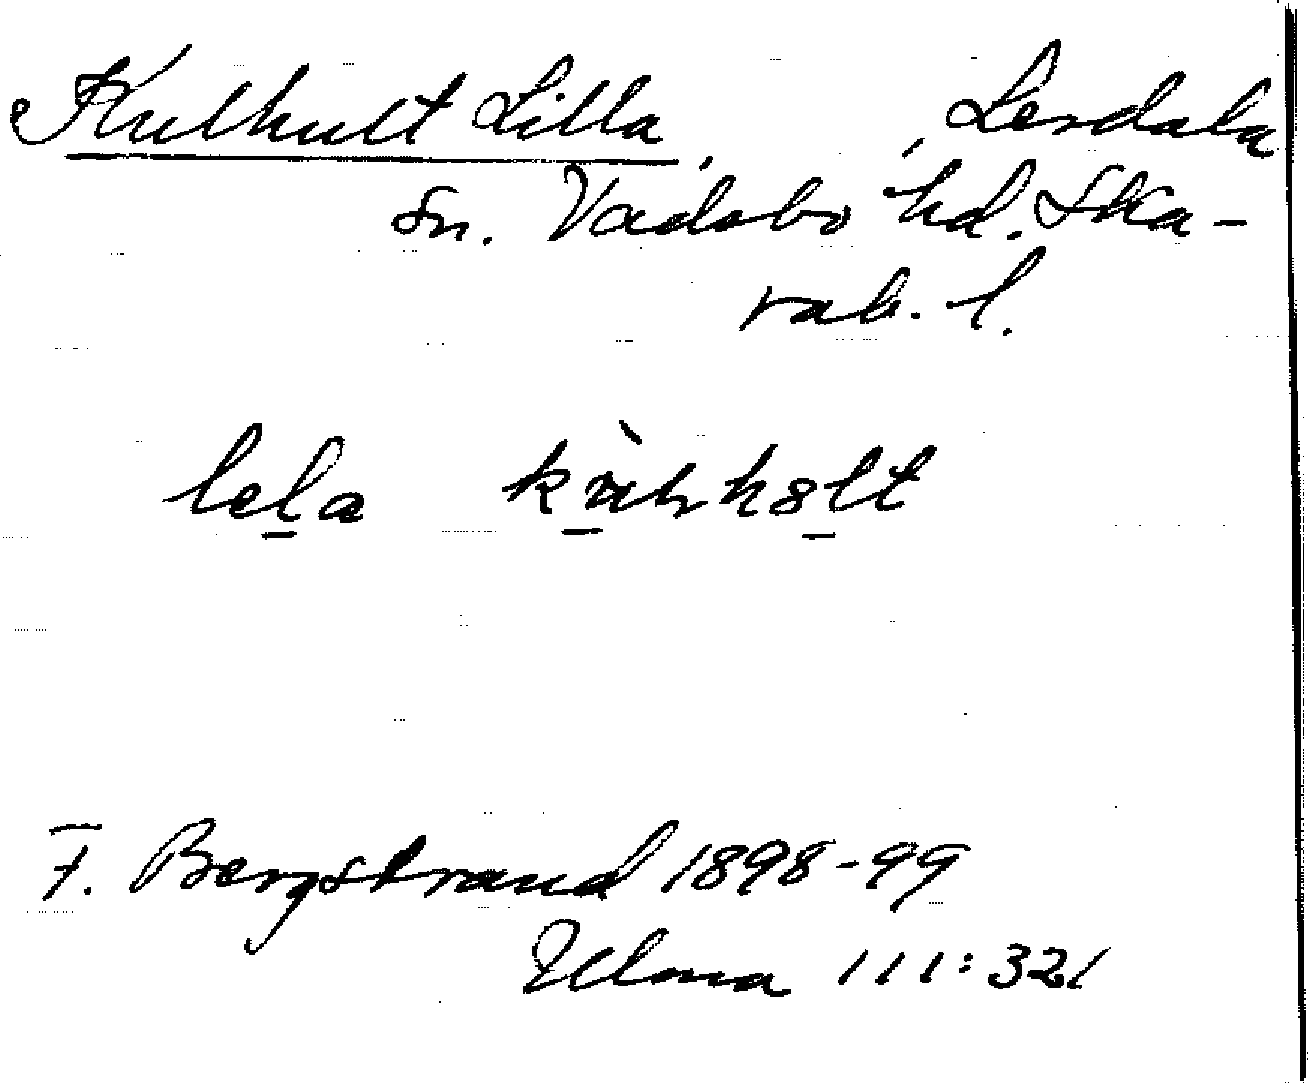 Kulhult Lilla, , Lerdala
sn. Vadsbo hd. Ska-
rab. l.
lela
F. Bergstrand 1898-99
Ulma 111:321